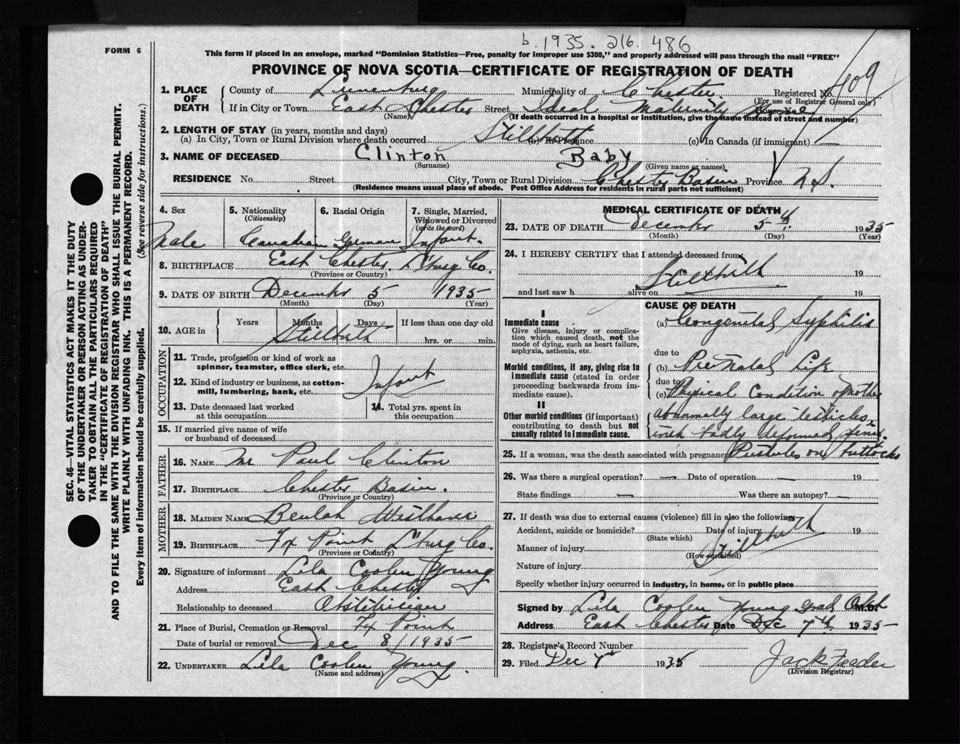 b. 1935. 216. 486
FORM 6
This form if placed in an envelope, marked "Dominion Statistics—Free, penalty for improper use $300," and properly addressed will pass through the mail "FREE"
PROVINCE OF NOVA SCOTIA—CERTIFICATE OF REGISTRATION OF DEATH
409
1. PLACE OF DEATH
County of Lunenburg Municipality of Chester Registered No.
(For use of Registrar General only)
If in City or Town East Chester Street Ideal Maternity
(Name) (If death occurred in a hospital or institution, give the name instead of street and number)
2. LENGTH OF STAY (in years, months and days)
(a) In City, Town or Rural Division where death occurred Stillbirth (b) In Province (c) In Canada (if immigrant)
3. NAME OF DECEASED Clinton Baby
(Surname) (Given name or names)
RESIDENCE No. Street. City, Town or Rural Division Chester Basin Province N.S.
(Residence means usual place of abode. Post Office Address for residents in rural parts not sufficient)
4. Sex 5. Nationality 6. Racial Origin 7. Single, Married, Widowed or Divorced
(Citizenship) (write the word)
Male Canadian German Infant.
8. BIRTHPLACE East Chester. L'burg Co.
(Province or Country)
9. DATE OF BIRTH December 5 1935
(Month) (Day) (Year)
10. AGE in Years Months Days If less than one day old
Stillbirth hrs. or min.
OCCUPATION
11. Trade, profession or kind of work as spinner, teamster, office clerk, etc.
12. Kind of industry or business, as cotton-mill, lumbering, bank, etc. Infant
13. Date deceased last worked at this occupation 14. Total yrs. spent in this occupation
15. If married give name of wife or husband of deceased
FATHER
16. NAME Mr Paul Clinton
17. BIRTHPLACE Chester Basin.
(Province or Country)
MOTHER
18. MAIDEN NAME Beulah Westhaver
19. BIRTHPLACE Fx Point L'burg Co.
(Province or Country)
20. Signature of informant Lila Coolen Young
Address East Chester
Relationship to deceased Obstetrician
21. Place of Burial, Cremation or Removal Fx Point
Date of burial or removal Dec 8/1935
22. UNDERTAKER Lila Coolen Young.
(Name and address)
MEDICAL CERTIFICATE OF DEATH
23. DATE OF DEATH December 5th 1935
(Month) (Day) (Year)
24. I HEREBY CERTIFY that I attended deceased from
Stillbirth 19
and last saw h alive on 19
CAUSE OF DEATH
I
Immediate cause
Give disease, injury or complication which caused death, not the mode of dying, such as heart failure, asphyxia, asthenia, etc.
Morbid conditions, if any, giving rise to immediate cause (stated in order proceeding backwards from immediate cause).
II
Other morbid conditions (if important) contributing to death but not causally related to immediate cause.
(a) Congenital Syphilis
due to
(b) Pre-Natal Life
due to
(c) Physical Condition of Mother
abnormally large testicles,
with badly deformed penis.
25. If a woman, was the death associated with pregnancy Pustules on buttocks
26. Was there a surgical operation? — Date of operation — 19
State findings — Was there an autopsy? -
27. If death was due to external causes (violence) fill in also the following:
Accident, suicide or homicide? Date of injury 19
(State which)
Manner of injury Stillbirth
(How sustained)
Nature of injury
Specify whether injury occurred in industry, in home, or in public place
Signed by Lila Coolen Young M.D.
Address East Chester Date Dec 7th 1935
28. Registrar's Record Number
29. Filed Dec 7th 1935 Jack Feader
(Division Registrar)
SEC. 46—VITAL STATISTICS ACT MAKES IT THE DUTY
OF THE UNDERTAKER OR PERSON ACTING AS UNDER-
TAKER TO OBTAIN ALL THE PARTICULARS REQUIRED
IN THE "CERTIFICATE OF REGISTRATION OF DEATH"
AND TO FILE THE SAME WITH THE DIVISION REGISTRAR WHO SHALL ISSUE THE BURIAL PERMIT.
WRITE PLAINLY WITH UNFADING INK. THIS IS A PERMANENT RECORD.
Every item of information should be carefully supplied.
(See reverse side for instructions.)